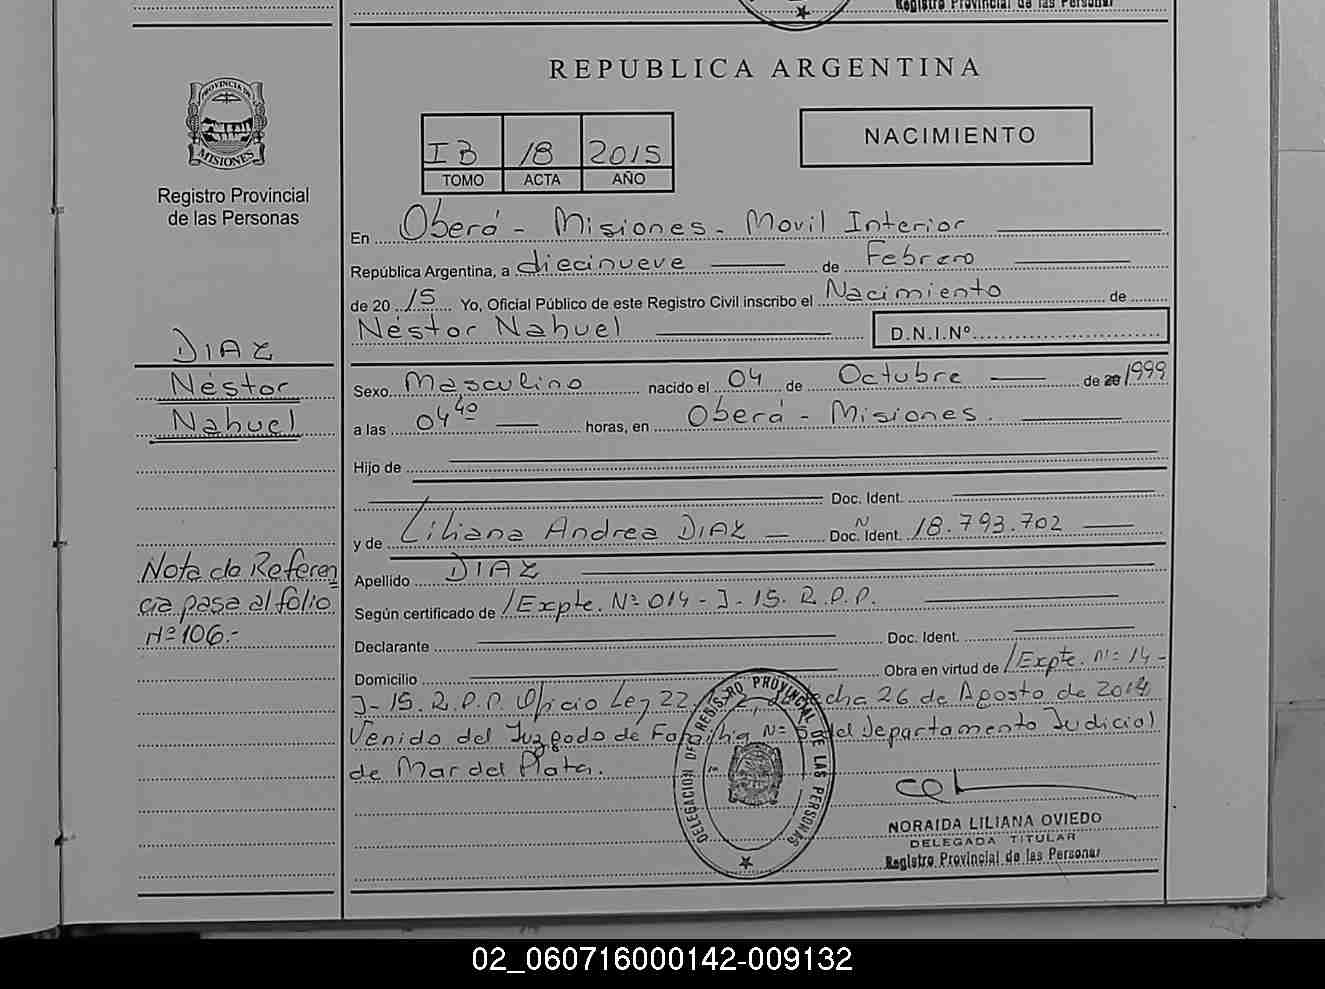 Registro Provincial de las Personas
REPUBLICA ARGENTINA
PROVINCIA DE
MISIONES
Registro Provincial
de las Personas
IB 18 2015
TOMO ACTA AÑO
NACIMIENTO
En Oberá - Misiones - Movil Interior
República Argentina, a diecinueve de Febrero
de 20 15 Yo, Oficial Público de este Registro Civil inscribo el Nacimiento de
Néstor Nahuel D.N.I.Nº
DIAZ
Néstor
Nahuel
Sexo Masculino nacido el 04 de Octubre de 20 1999
a las 04 40 horas, en Oberá - Misiones.
Hijo de
Doc. Ident.
y de Liliana Andrea DIAZ Doc. Ident. Nº 18.793.702
Nota de Referen
cia pasa al folio
Nº 106.-
Apellido DIAZ
Según certificado de /Expte. Nº 014 - J - 15. R.P.P.
Declarante Doc. Ident.
Domicilio Obra en virtud de /Expte. Nº 14 -
J - 15. R.P.P. Oficio Ley 22. fecha 26 de Agosto de 2014
Venido del Juzgado de Familia Nº del Departamento Judicial
de Mar del Plata.
DELEGACION DEL REGISTRO PROVINCIAL DE LAS PERSONAS
NORAIDA LILIANA OVIEDO
DELEGADA TITULAR
Registro Provincial de las Personas
02_060716000142-009132